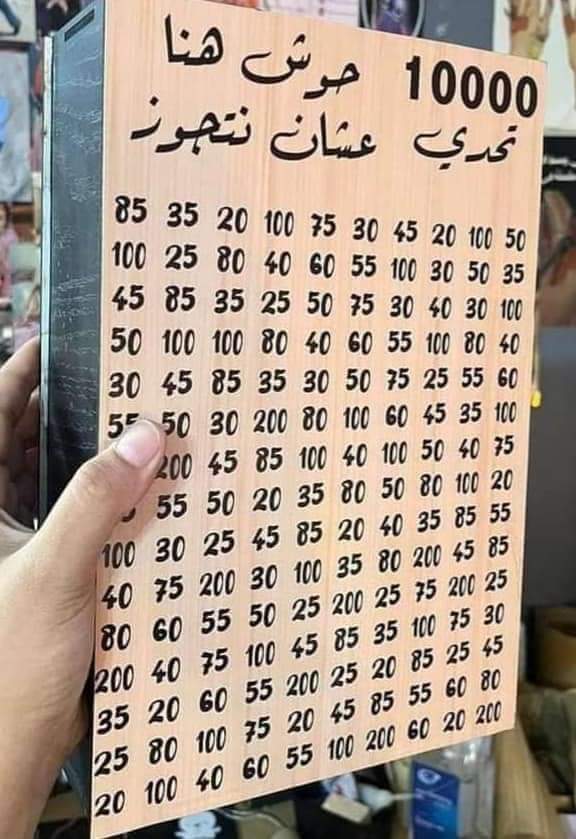 10000 حوش هنا
تحدي عشان نتجوز
85 35 20 100 75 30 45 20 100 50
100 25 80 40 60 55 100 30 50 35
45 85 35 25 50 75 30 40 30 100
50 100 100 80 40 60 55 100 80 40
30 45 85 35 30 50 75 25 55 60
55 50 30 200 80 100 60 45 35 100
200 45 85 100 40 100 50 40 75
55 50 20 35 80 50 80 100 20
100 30 25 45 85 20 40 35 85 55
40 75 200 30 100 35 80 200 45 85
80 60 55 50 25 200 25 75 200 25
200 40 75 100 45 85 35 100 75 30
35 20 60 55 200 25 20 85 25 45
25 80 100 75 20 45 85 55 60 80
20 100 40 60 55 100 200 60 20 200